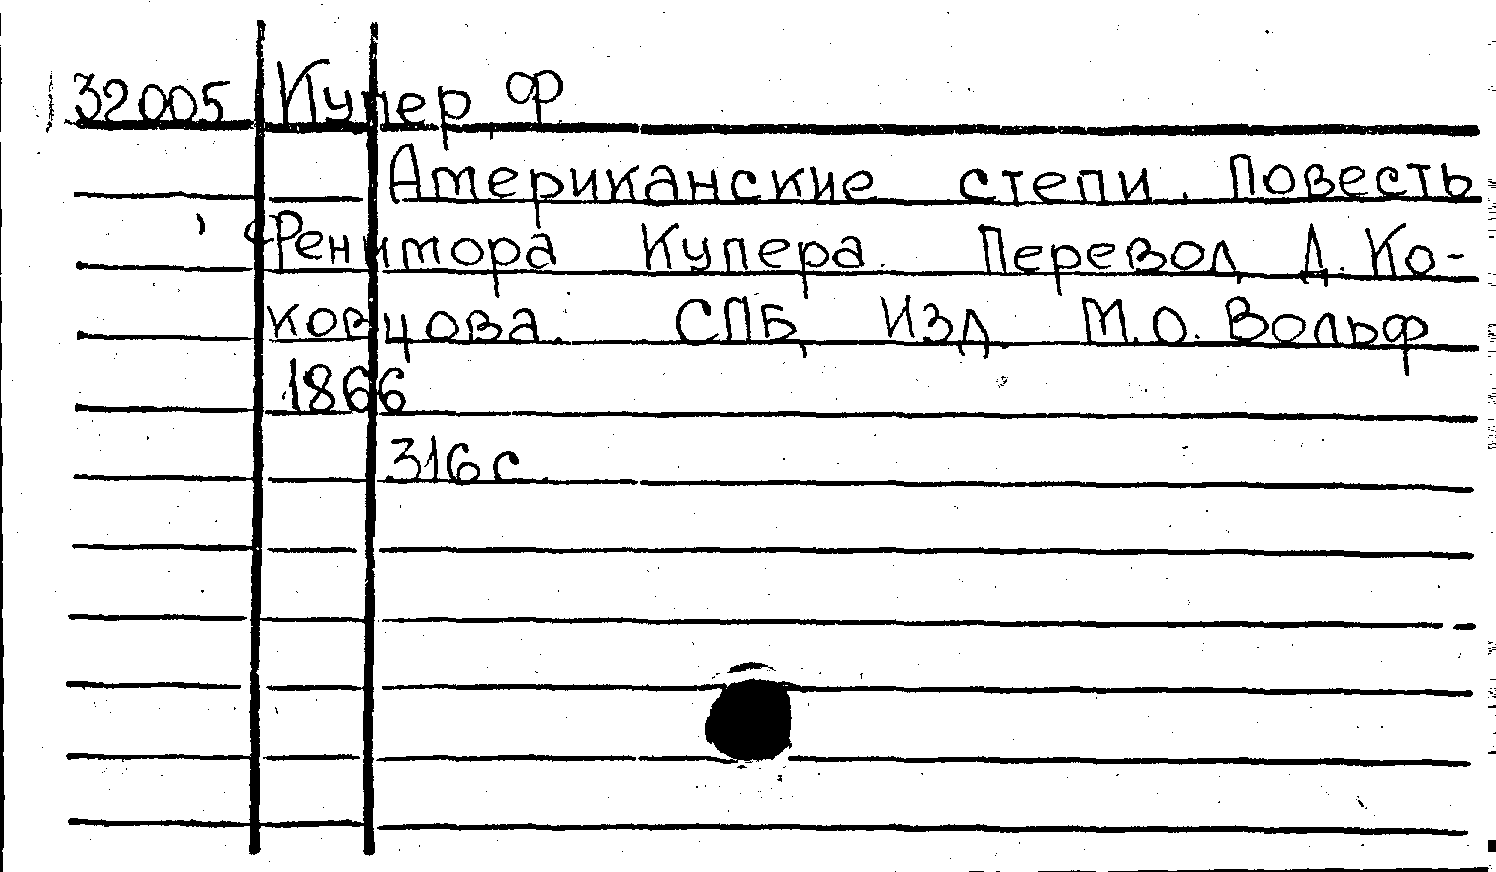 32005 Купер Ф
Американские степи. Повесть
Фенимора Купера. Перевод Д. Ко-
ковцова. СПБ, Изд. М.О. Вольф
1866
316 с.